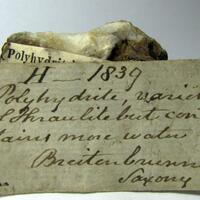 Polyhydrit
H — 1839
Polyhydrite, varie
of Thraulite but con
tains more water
Breitenbrunn
Saxony